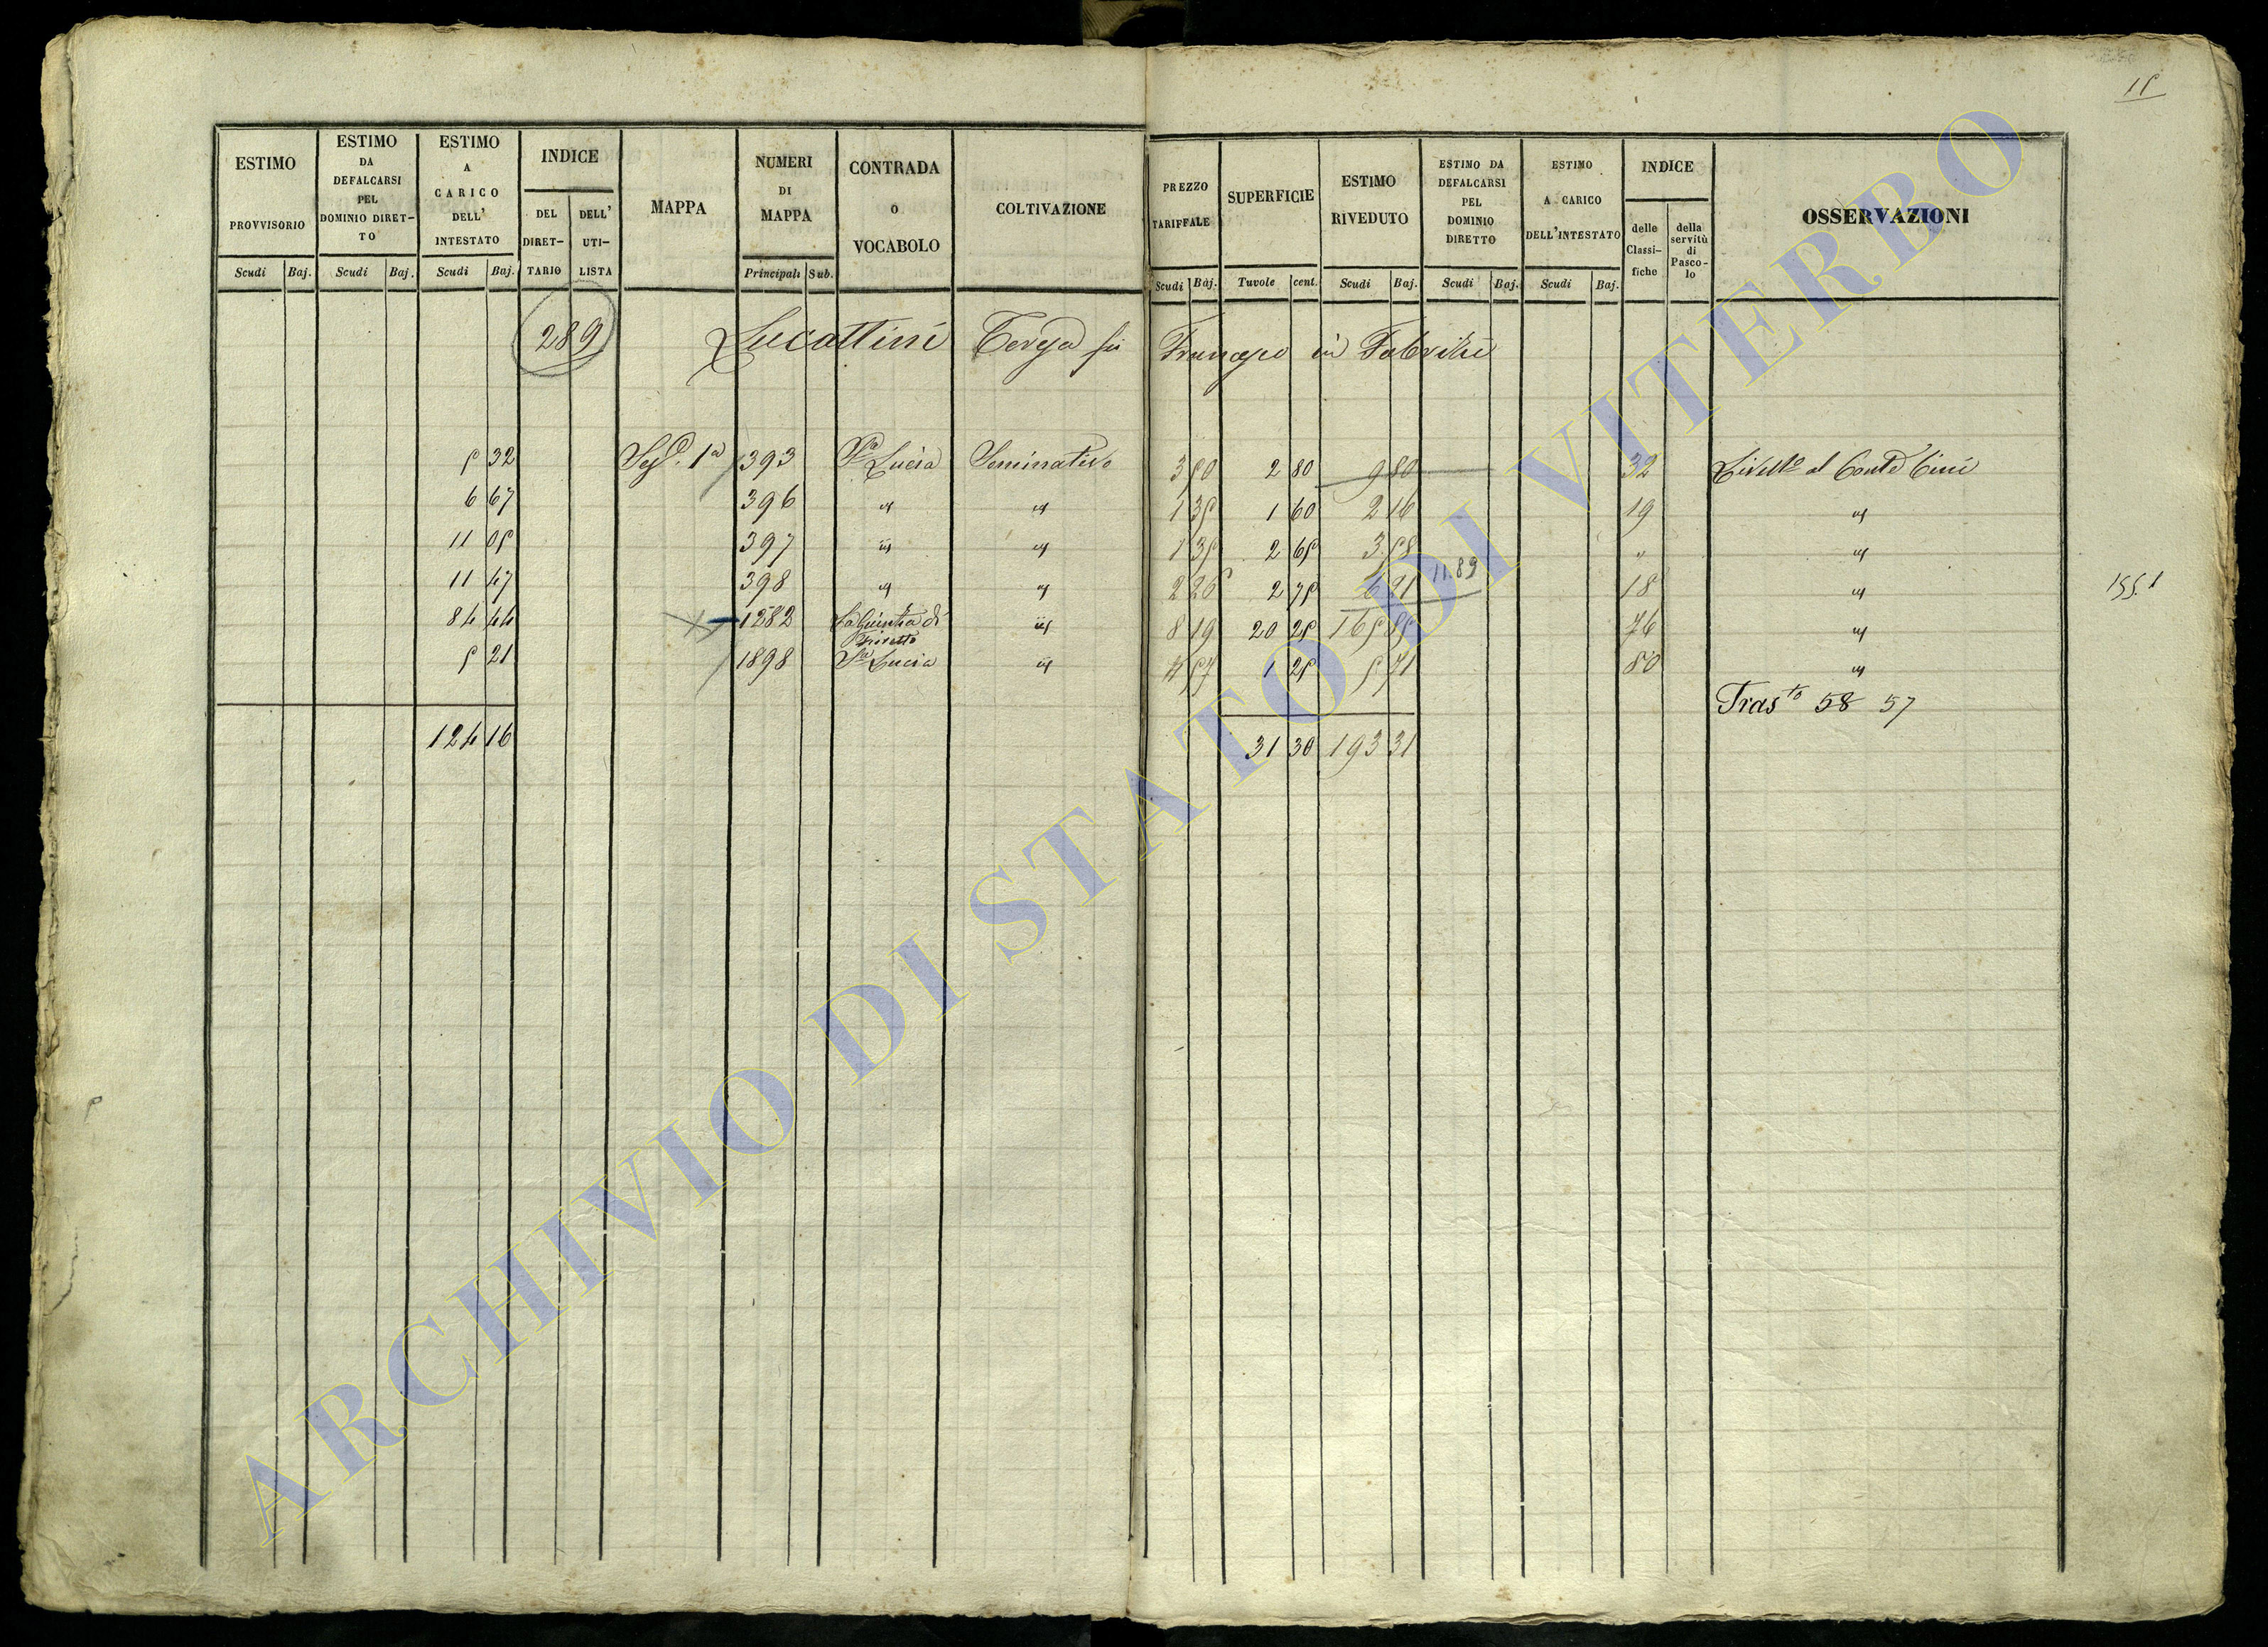 15
ESTIMO PROVVISORIO Scudi Baj.
ESTIMO DA DEFALCARSI PEL DOMINIO DIRET-TO Scudi Baj.
ESTIMO A CARICO DELL' INTESTATO Scudi Baj.
INDICE DEL DIRET-TARIO DELL' UTI-LISTA
MAPPA
NUMERI DI MAPPA Principali Sub.
CONTRADA O VOCABOLO
COLTIVAZIONE
PREZZO TARIFFALE Scudi Baj.
SUPERFICIE Tavole cent.
ESTIMO RIVEDUTO Scudi Baj.
ESTIMO DA DEFALCARSI PEL DOMINIO DIRETTO Scudi Baj.
ESTIMO A CARICO DELL'INTESTATO Scudi Baj.
INDICE delle Classi-fiche della servitù di Pasco-lo
OSSERVAZIONI
289 Lucattini Teresa fu Francesco in Fabrizi
5 32 Sez. 1a 393 Sa Lucia Seminativo 3 50 2 80 9 80 32 Livello al Conte Cini
6 67 396 " " 1 35 1 60 2 16 19 "
11 05 397 " " 1 35 2 65 3 58 " "
11 47 398 " " 2 26 2 75 6 91 11.89 18 " 155.1
84 44 1282 di " 8 19 20 25 165 85 76 "
5 21 1898 Sa Lucia " 4 57 1 25 5 71 80 "
Trasto 58 57
124 16 31 30 193 31
ARCHIVIO DI STATO DI VITERBO